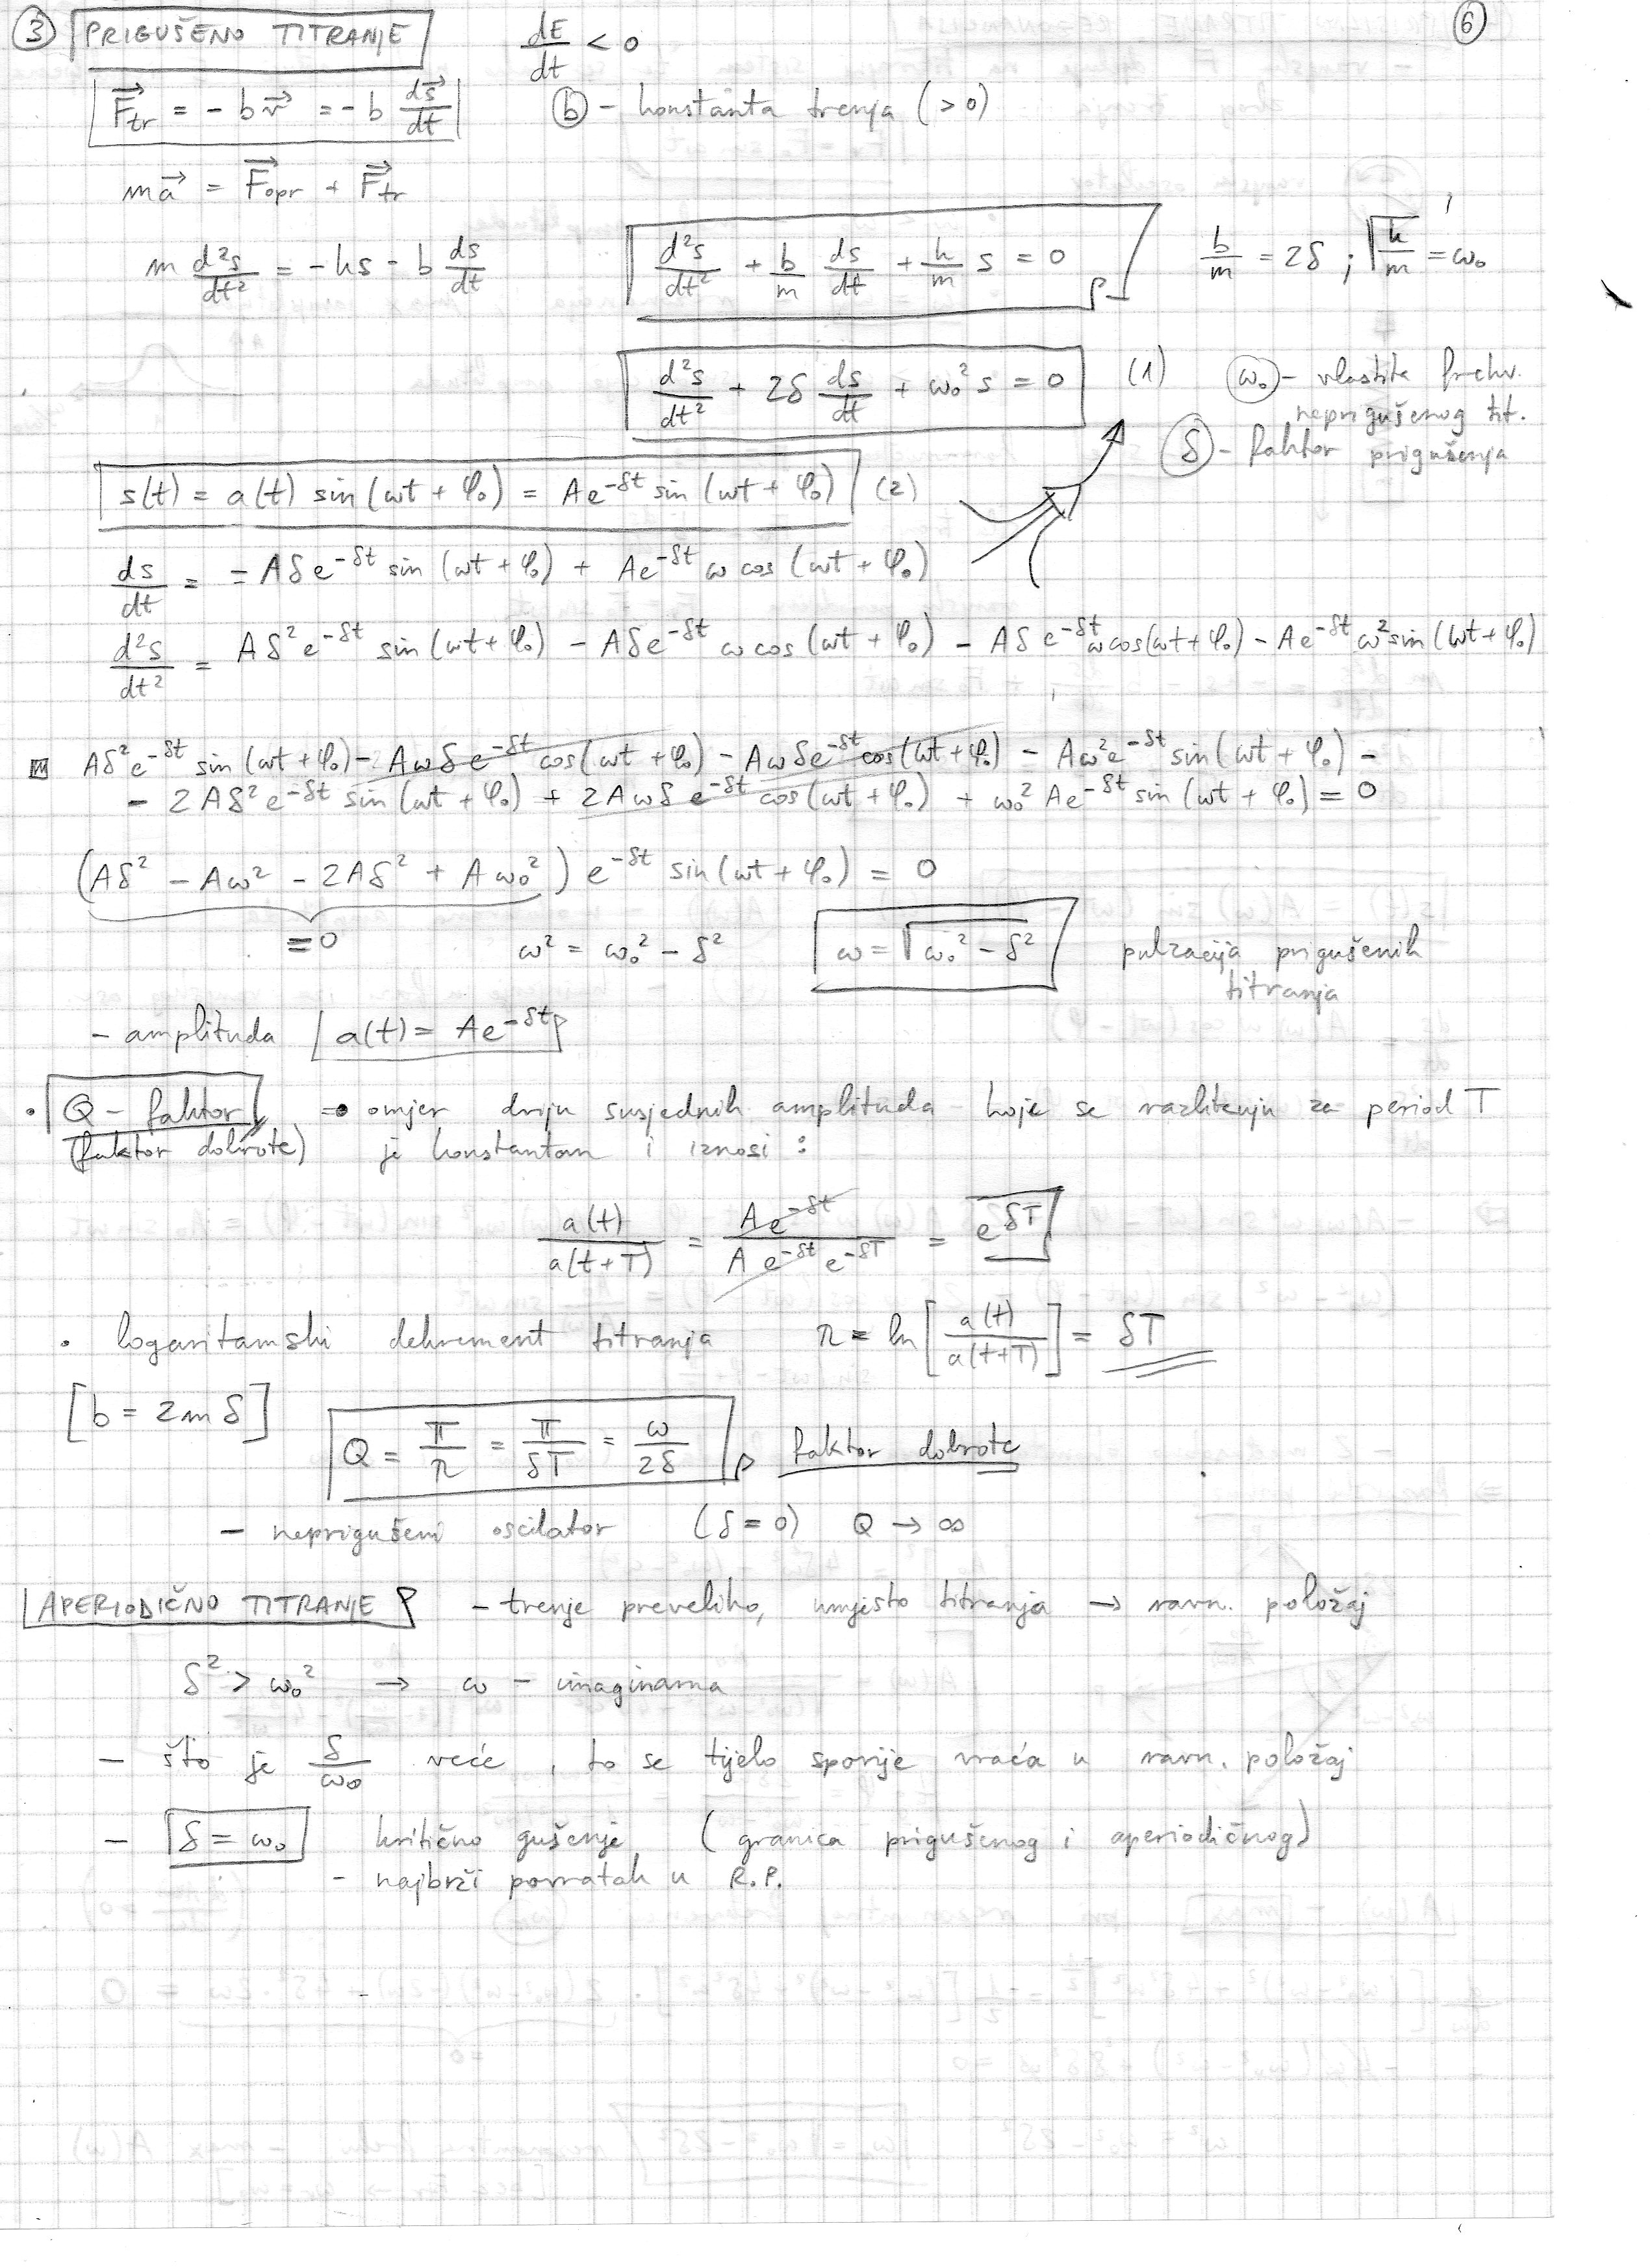 ③ PRIGUŠENO TITRANJE dE/dt < 0 ⑥
F⃗tr = - b v⃗ = - b ds⃗/dt ⓑ - konstanta trenja (> 0)
m a⃗ = F⃗opr + F⃗tr
m d²s/dt² = - ks - b ds/dt d²s/dt² + b/m ds/dt + k/m s = 0 b/m = 2δ ; √(k/m) = ω₀
d²s/dt² + 2δ ds/dt + ω₀² s = 0 (1) ω₀ - vlastita frekv.
neprigušenog tit.
δ - faktor prigušenja
s(t) = a(t) sin (ωt + φ₀) = A e^(-δt) sin (ωt + φ₀) (2)
ds/dt = - Aδ e^(-δt) sin (ωt + φ₀) + A e^(-δt) ω cos (ωt + φ₀)
d²s/dt² = Aδ² e^(-δt) sin (ωt + φ₀) - Aδ e^(-δt) ω cos (ωt + φ₀) - Aδ e^(-δt) ω cos (ωt + φ₀) - A e^(-δt) ω² sin (ωt + φ₀)
Aδ² e^(-δt) sin (ωt + φ₀) - Aωδ e^(-δt) cos (ωt + φ₀) - Aωδ e^(-δt) cos (ωt + φ₀) - Aω² e^(-δt) sin (ωt + φ₀) -
- 2Aδ² e^(-δt) sin (ωt + φ₀) + 2Aωδ e^(-δt) cos (ωt + φ₀) + ω₀² A e^(-δt) sin (ωt + φ₀) = 0
(Aδ² - Aω² - 2Aδ² + Aω₀²) e^(-δt) sin (ωt + φ₀) = 0
= 0 ω² = ω₀² - δ² ω = √(ω₀² - δ²) pulzacija prigušenih
titranja
- amplituda a(t) = A e^(-δt)
• Q - faktor → omjer dviju susjednih amplituda koje se razlikuju za period T
(faktor dobrote) je konstantan i iznosi :
a(t)/a(t+T) = A e^(-δt)/(A e^(-δt) e^(-δT)) = e^(δT)
• logaritamski dekrement titranja λ = ln [a(t)/a(t+T)] = δT
[b = 2mδ]
Q = π/λ = π/δT = ω/2δ faktor dobrote
- neprigušeni oscilator (δ = 0) Q → ∞
APERIODIČNO TITRANJE - trenje preveliko, umjesto titranja → ravn. položaj
δ² > ω₀² → ω - imaginarna
- što je δ/ω₀ veće, to se tijelo sporije vraća u ravn. položaj
- δ = ω₀ kritično gušenje (granica prigušenog i aperiodičnog)
- najbrži povratak u R.P.